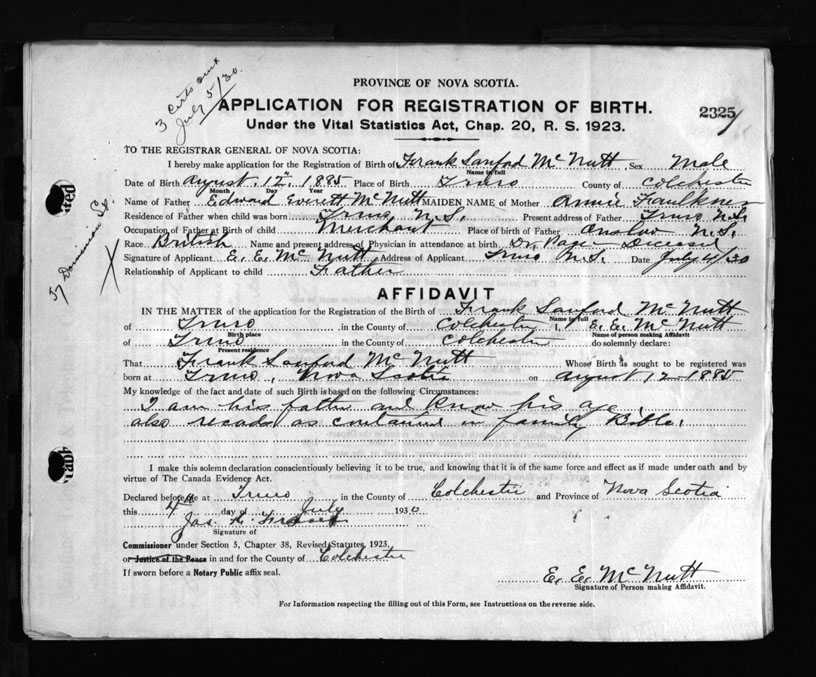 3 Certs out
July 5/30.
PROVINCE OF NOVA SCOTIA.
APPLICATION FOR REGISTRATION OF BIRTH.
2325
Under the Vital Statistics Act, Chap. 20, R. S. 1923.
TO THE REGISTRAR GENERAL OF NOVA SCOTIA:
I hereby make application for the Registration of Birth of Frank Sanford McNutt, Sex Male
Name in full
Date of Birth August 12" 1885 Place of Birth Truro County of Colchester
Month Day Year
Name of Father Edward Everett McNutt MAIDEN NAME of Mother Annie Faulkner
Residence of Father when child was born Truro N.S. Present address of Father Truro N.S.
Occupation of Father at Birth of child Merchant Place of birth of Father Onslow N.S.
Race British Name and present address of Physician in attendance at birth Dr. Page Deceased
Signature of Applicant E. E. McNutt Address of Applicant Truro N.S. Date July 4/30
Relationship of Applicant to child Father
57 Dominion St.
AFFIDAVIT
IN THE MATTER of the application for the Registration of the Birth of Frank Sanford McNutt
Name in full
of Truro in the County of Colchester I, E. E. McNutt
Birth place Name of person making Affidavit
of Truro in the County of Colchester do solemnly declare:
Present residence
That Frank Sanford McNutt Whose Birth is sought to be registered was
born at Truro, Nova Scotia on August 12 1885
My knowledge of the fact and date of such Birth is based on the following Circumstances:
I am his father and know his age
also records as contained in family Bible.
I make this solemn declaration conscientiously believing it to be true, and knowing that it is of the same force and effect as if made under oath and by
virtue of The Canada Evidence Act.
Declared before me at Truro in the County of Colchester and Province of Nova Scotia
this 4th day of July 1930
Jas. Fraser
Signature of
Commissioner under Section 5, Chapter 38, Revised Statutes, 1923,
or Justice of the Peace in and for the County of Colchester
If sworn before a Notary Public affix seal.
E. E. McNutt
Signature of Person making Affidavit.
For Information respecting the filling out of this Form, see Instructions on the reverse side.